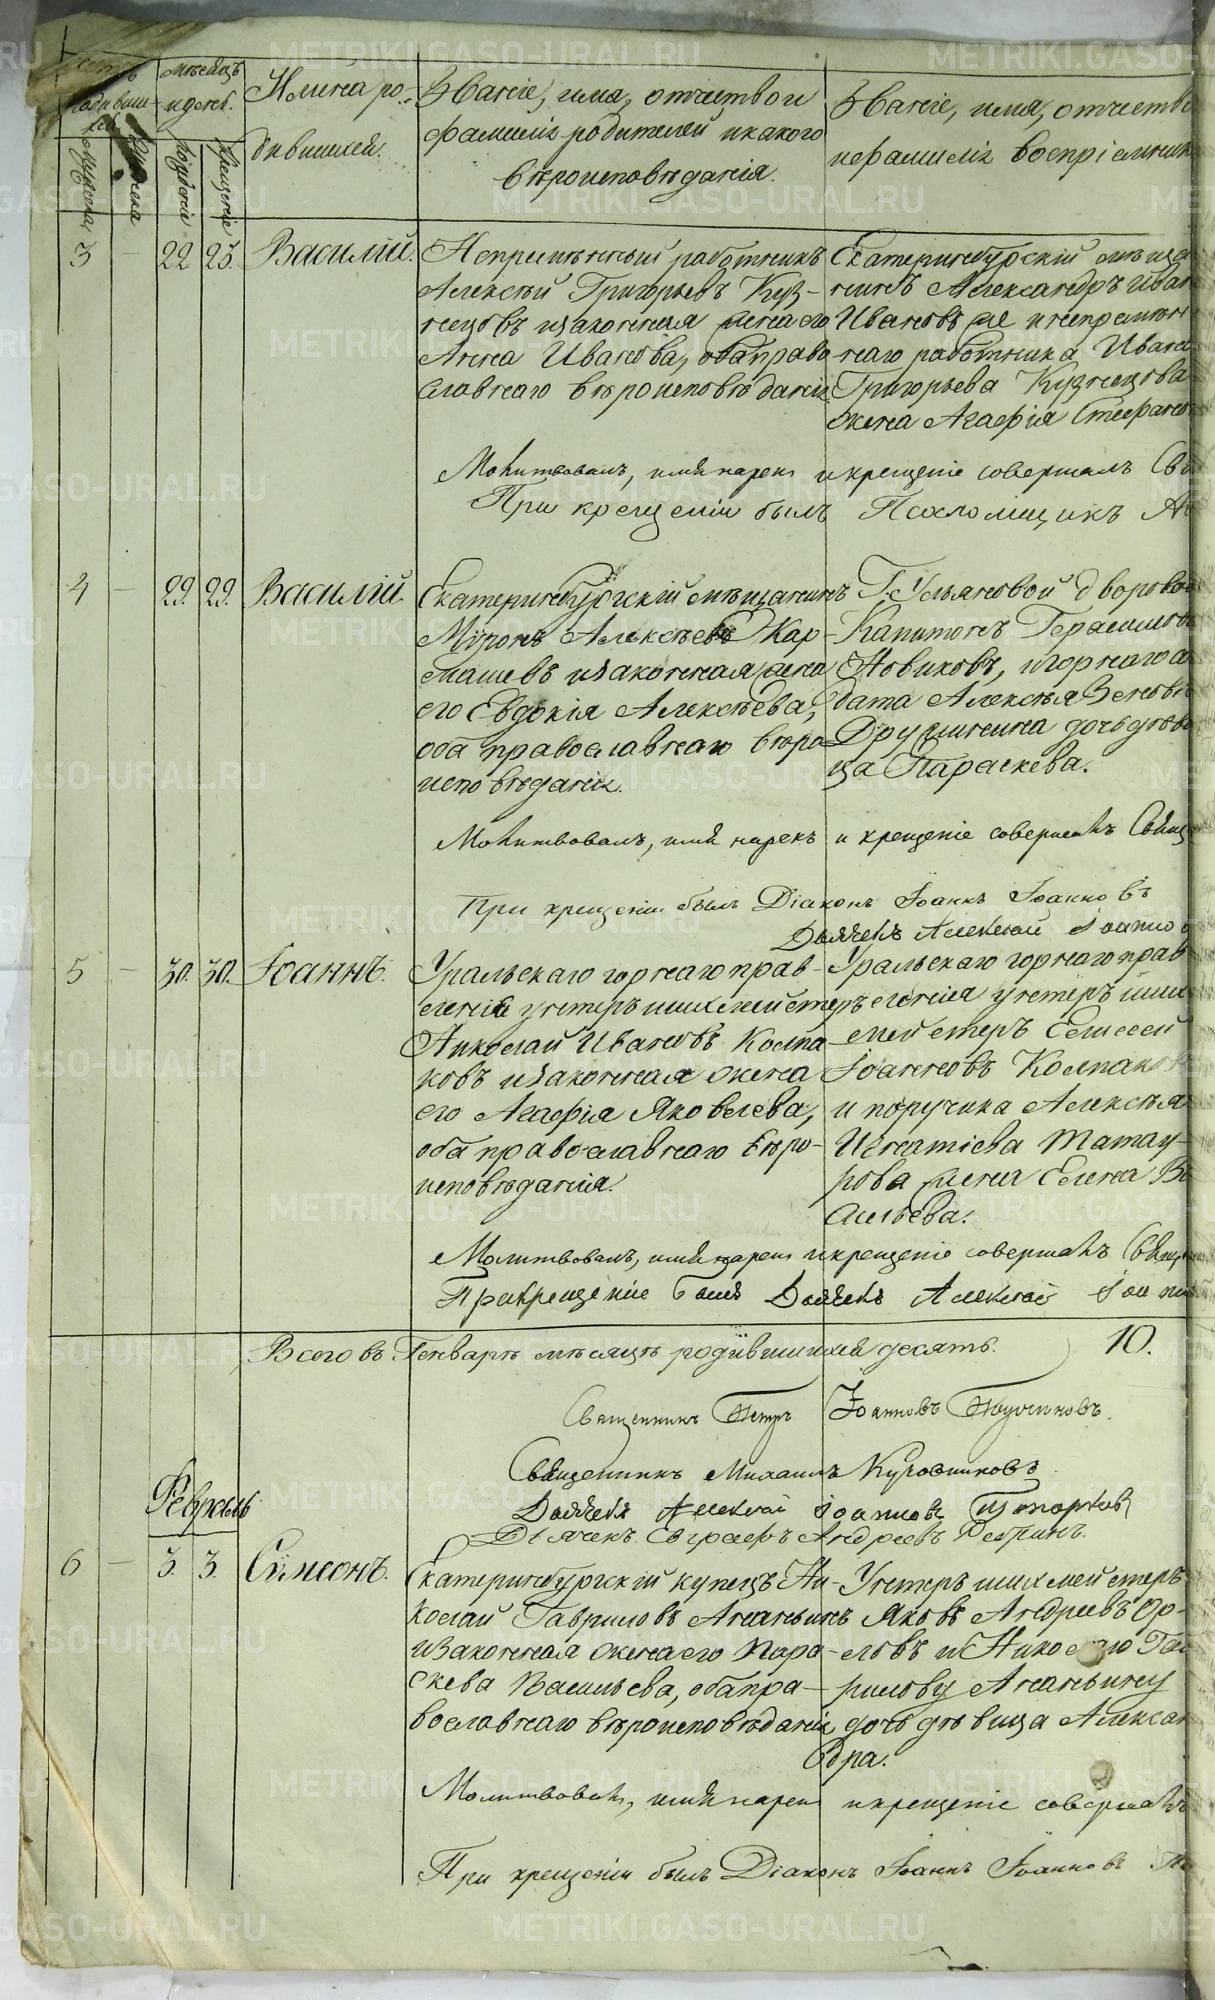 Счетъ
родивших-
ся.
мѣсяцъ
и день.
Имена ро-
дившихся.
Званіе, имя, отчество и
фамилія родителей и какого
вѣроисповѣданія.
Званіе, имя, отчество
и фамилія воспріемник
мужеска
женска
рожденія
крещенія
3 — 22 25. Василій.
Непремѣнный работникъ
Алексѣй Григорьевъ Куз-
нецовъ изаконная жена его
Анна Иванова, оба право
славнаго вѣроисповѣданія.
Екатеринбургскій мѣща
нинъ Александръ Иван
Ивановъ же инепремѣн
наго работника Ивана
Григорьева Кузнецова
жена Агафія Стефанов
Молитвовалъ, имя нарекъ и крещеніе совершалъ Св
При крещеніи былъ Псаломщикъ А
4 — 29. 29. Василій
Екатеринбургскій мѣщанинъ
Миронъ Алексѣевъ Кар-
ташевъ изаконная жена
его Евдокія Алексѣева,
оба православнаго вѣро
исповѣданія.
Г. Ульяновой дворовой
Капитонъ Герасимов
Новиковъ, игорнаго со
дата Алексѣя Зенов
Дружинина дочь дѣви
ца Параскева.
Молитвовалъ, имя нарекъ и крещеніе совершалъ Свящ
При крещеніи былъ Діаконъ Іоаннъ Іоанновъ
Дьячекъ Алексѣй Іоанно
5 — 30. 30. Іоаннъ.
Уральскаго горнаго прав-
ленія унтеръ шихмейстеръ
Николай Ивановъ Колпа
ковъ изаконная жена
его Агафія Яковлева,
оба православнаго вѣро-
исповѣданія.
Уральскаго горнаго прав
еленія унтеръ ших
мейстеръ Елисей
Іоанновъ Колпаков
и поручика Алексѣя
Игнатіева Татау-
рова жена Елена Ва
сильева.
Молитвовалъ, имя нарекъ икрещеніе совершалъ Свящ
При крещеніе былъ Дьячекъ Алексѣй Іоанн
Всего въ Генварѣ мѣсяцѣ родившихся десять. 10.
Священникъ Петръ Іоанновъ
Священникъ Михаилъ
Дьячекъ Алексѣй Іоанновъ Топорковъ
Дьячекъ Евграфъ Андреевъ
Февраль
6 — 3. 3. Симеонъ.
Екатеринбургскій купецъ Ни-
колай Гавриловъ Ананьинъ
изаконная жена его Пара-
скева Васильева, оба пра-
вославнаго вѣроисповѣданія
Унтеръ шихмейстеръ
Яковъ Андреевъ Ор-
ловъ и Николаю Гав
рилову Ананьину
дочь дѣвица Алексан
дра.
Молитвовалъ, имя нарекъ икрещеніе совершалъ
При крещеніи былъ Діаконъ Іоаннъ Іоанновъ